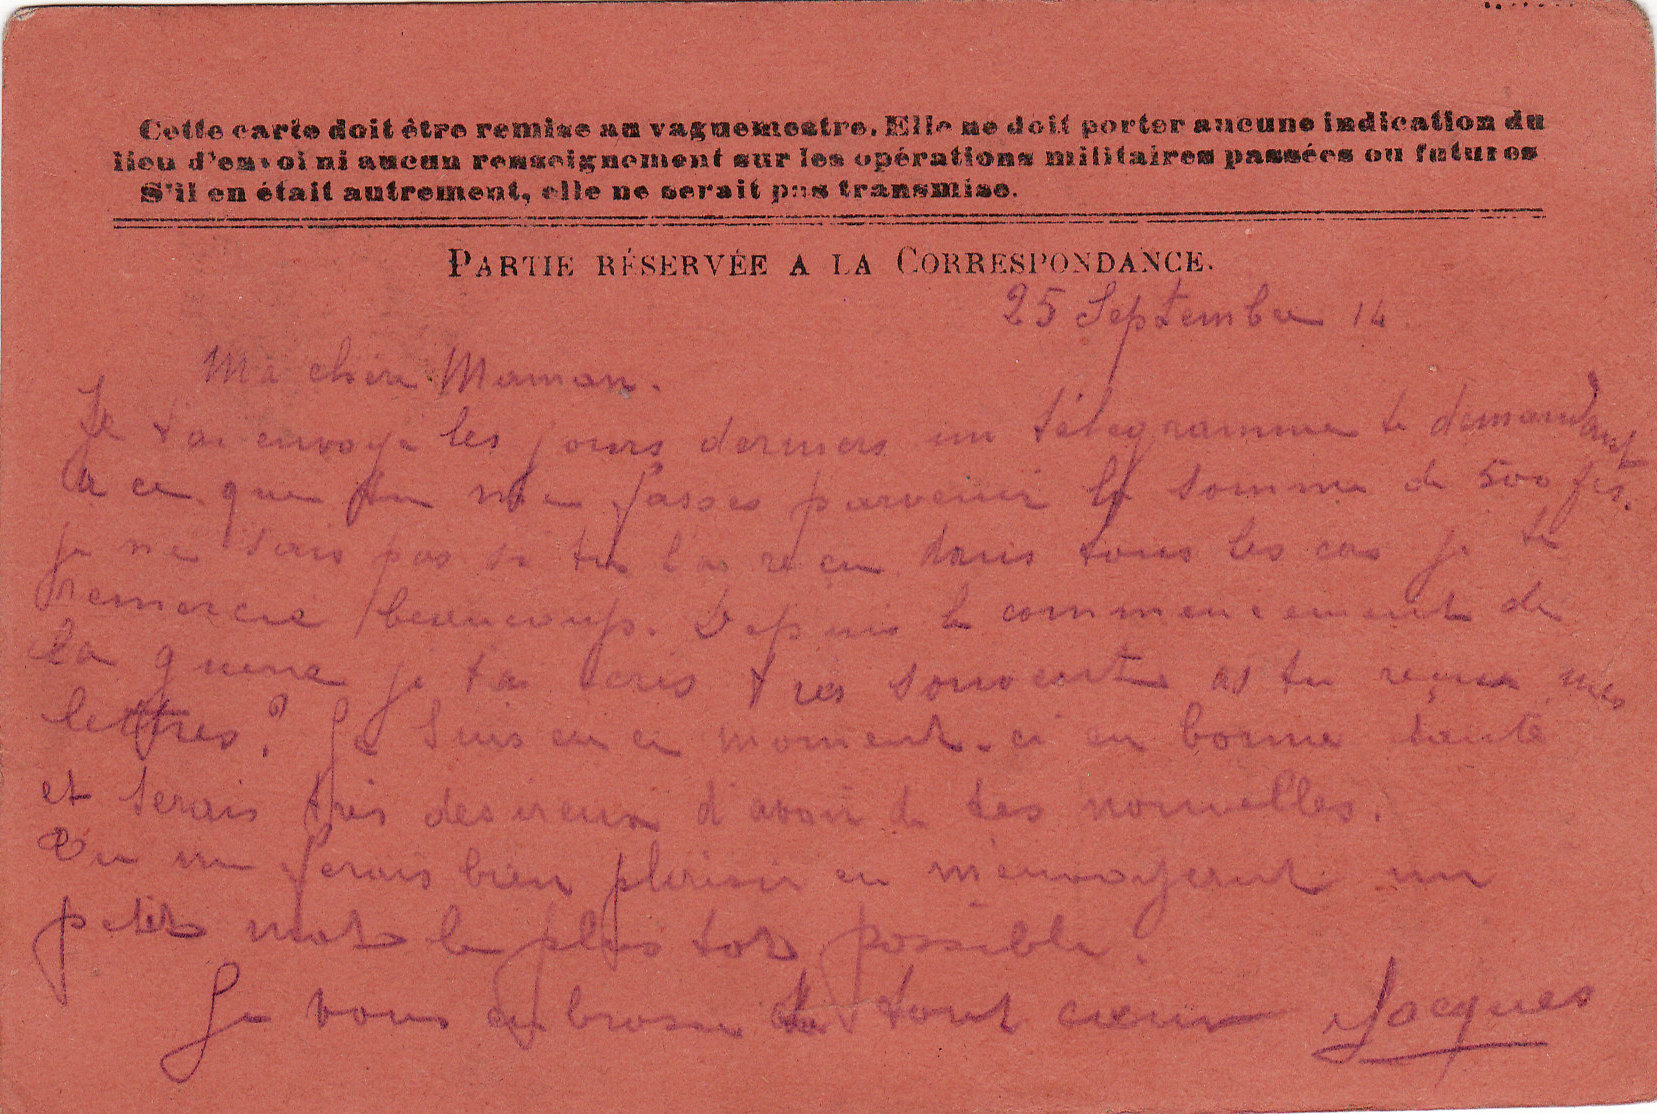 Cette carte doit être remise au vaguemestre. Elle ne doit porter aucune indication du
lieu d'envoi ni aucun renseignement sur les opérations militaires passées ou futures
S'il en était autrement, elle ne serait pas transmise.
PARTIE RÉSERVÉE A LA CORRESPONDANCE.
25 Septembre 14
Ma chère Maman.
Je t'ai envoyé les jours derniers un télégramme te demandant
à ce que tu me fasses parvenir la somme de 500 frs.
je ne sais pas si tu l'as reçu dans tous les cas je te
remercie beaucoup. Depuis le commencement de
la guerre je t'ai écris très souvent as tu reçu mes
lettres? Je suis en ce moment-ci en bonne santé
et serais très desireux d'avoir de tes nouvelles.
Tu me ferais bien plaisir en m'envoyant un
petit mot le plus tot possible.
Je vous embrasse de tout cœur Jacques